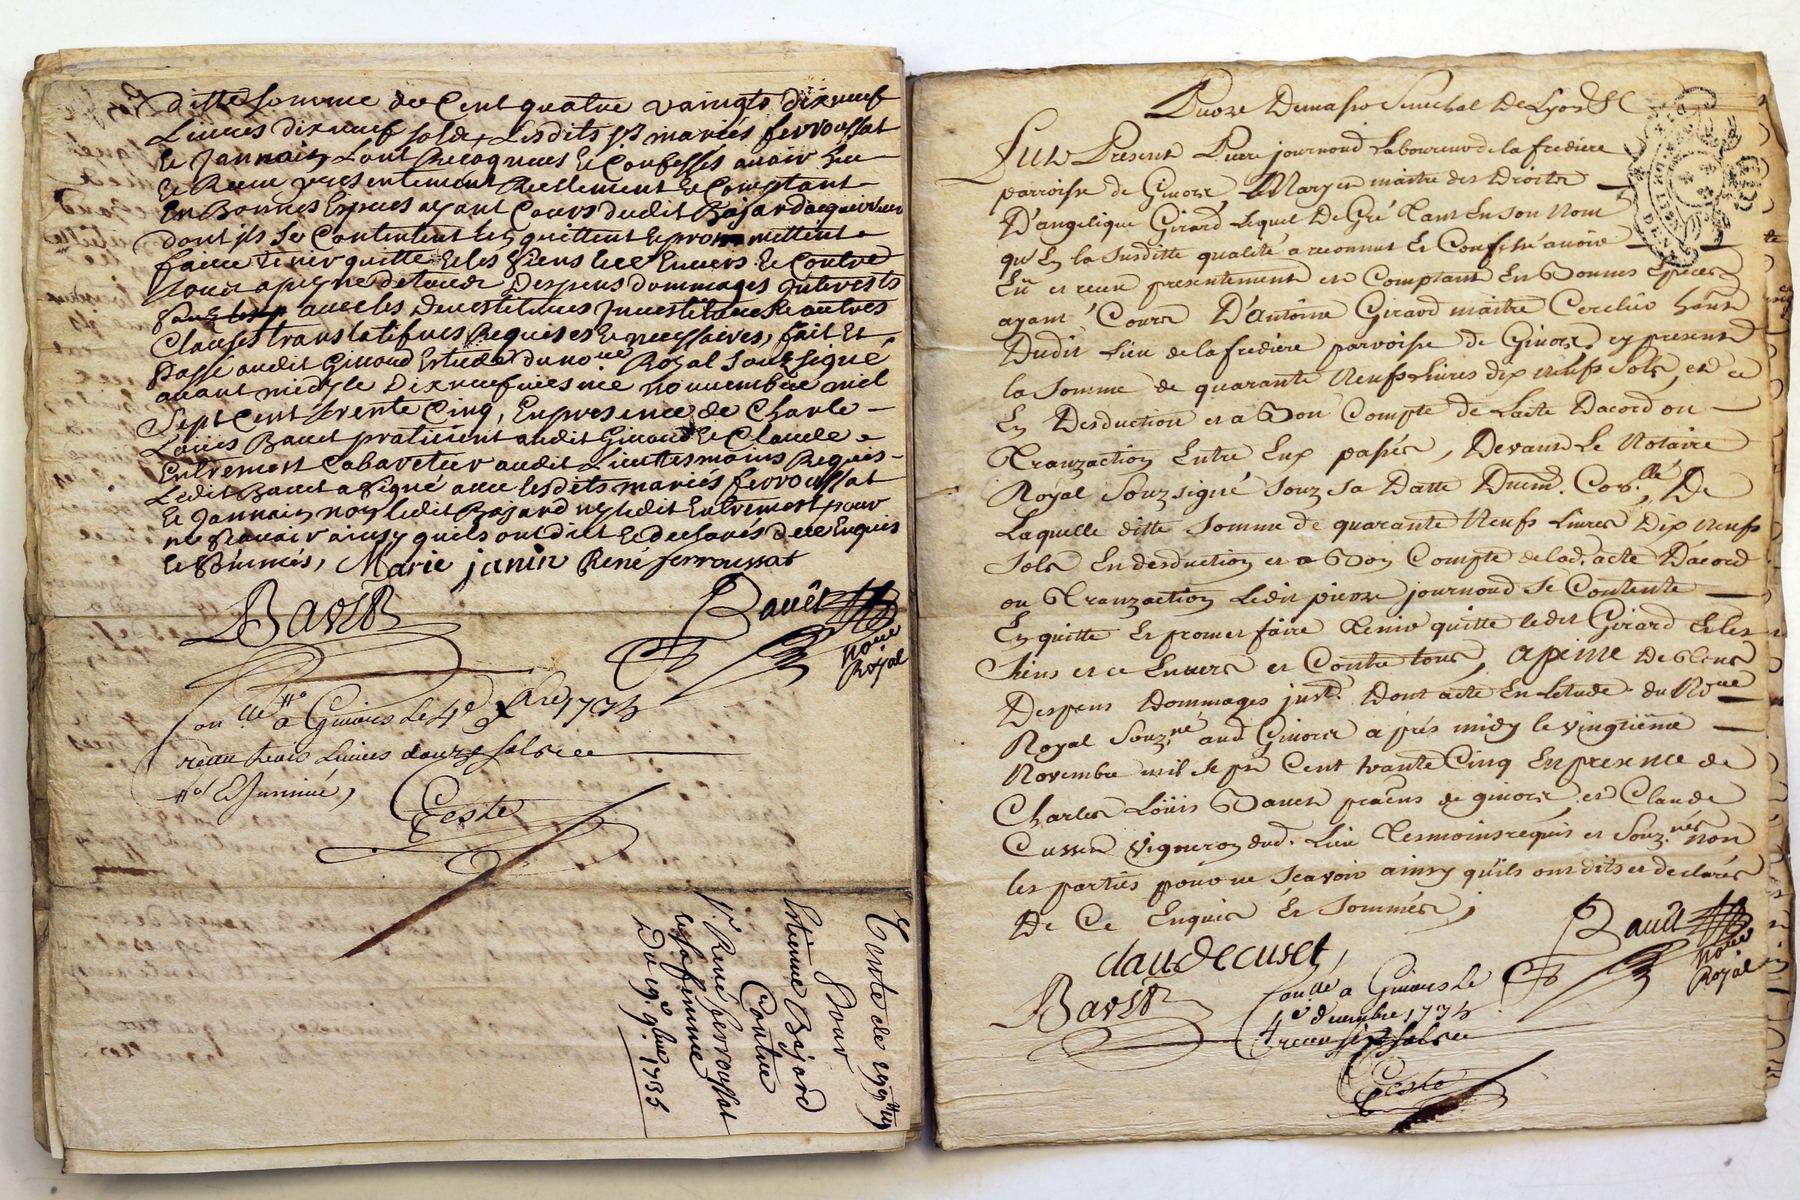 ditte somme de Cent quatre vaingts dixneuf
Livres dixneuf sols, Lesdits srs mariés ferroussat
et Jannain Lont Recogneue et Confessés avoir heu
et Receu presentement Reellement et Comptant
en Bonnes Especes ayant Cours dudit Bajard acquereur
dont ils se Contentent len quittent et promettent
faire tenir quitte et les siens luy Envers et Contre
tous a peyne de tous Despens dommages Interests
avec les Devestitures Investitures et autres
Clauses translatifves Requises et necessaires, fait et
Passé audit Givord Estude du nore Royal Souzsigné
avant midy le Dixneufviesme novembre mil
Sept Cent trente Cinq, En presence de Charle
Loüis Bauet praticient audit Givord et Claude
Entremont Cabaretier audit Lieu tesmoins Requis
Ledit Bauet a signé avec lesdits mariés ferroussat
et Jannain non ledit Bajard ny ledit Entremont pour
ne scavoir ainsy quils ont dit et declarés de ce Enquis
et sommés, Marie janin René ferroussat
Bauet
Bauet
nore
Royal
Conlle a Givors Le 4e Xbre 1735
receu trois Livres douze sols
Teste
Vente de
Pour
Estienne Bajard
Contre
Sr René ferroussat
et sa femme
Du 19e 9bre 1735
Fut Present Piere journoud Laboureur de la fredière
parroisse de Givors Mary et maitre des Droits
D'angelique Girard Lequel De Gré Tant En son Nom
qu'En la Susditte qualité a reconnut Et Confessé avoir
Eü et receu presentement et Comptant En Bonnes Especes
ayant Cours D'antoine Girard maitre Cerclier hab̃t
Dudit Lieu de la fredière parroisse de Givors, cy present
la Somme de quarante Neufs Livres dix neufs Sols, et ce
En Desduction et a Bon Compte de Lacte Dacord ou
Tranzaction Entre Eux passés, Devant Le Notaire
Royal Souzsigné Souz Sa Datte Duem. Con.llé, De
Laquelle ditte Somme de quarante Neufs Livres Dix Neufs
Sols En desduction et a Bon Compte de lad. acte Dacord
ou Tranzaction Ledit pierre journoud Se Contente
En quitte Et promet faire Tenir quitte ledit Girard Et les
Siens et ce Envers et Contre tous, a peine De Tous
Despens Dommages Dont acte En Letude du Nore
Royal Souz.né aud Givors a prés midy le vingtiéme
Novembre mil Sept Cent trante Cinq En presence de
Charles Loüis Bauet de givors et Claude
Cusset vigneron dud. Lieu Tesmoins requis et Souz.nés non
les parties pour ne Scavoir ainsy qu'ils ont dits et declarés
De Ce Enquis Et Sommés,
claude cuset,
Bauet
Bauet
nore
Royal
Conlle a Givors Le
4e decembre 1735
receu six sols
Teste